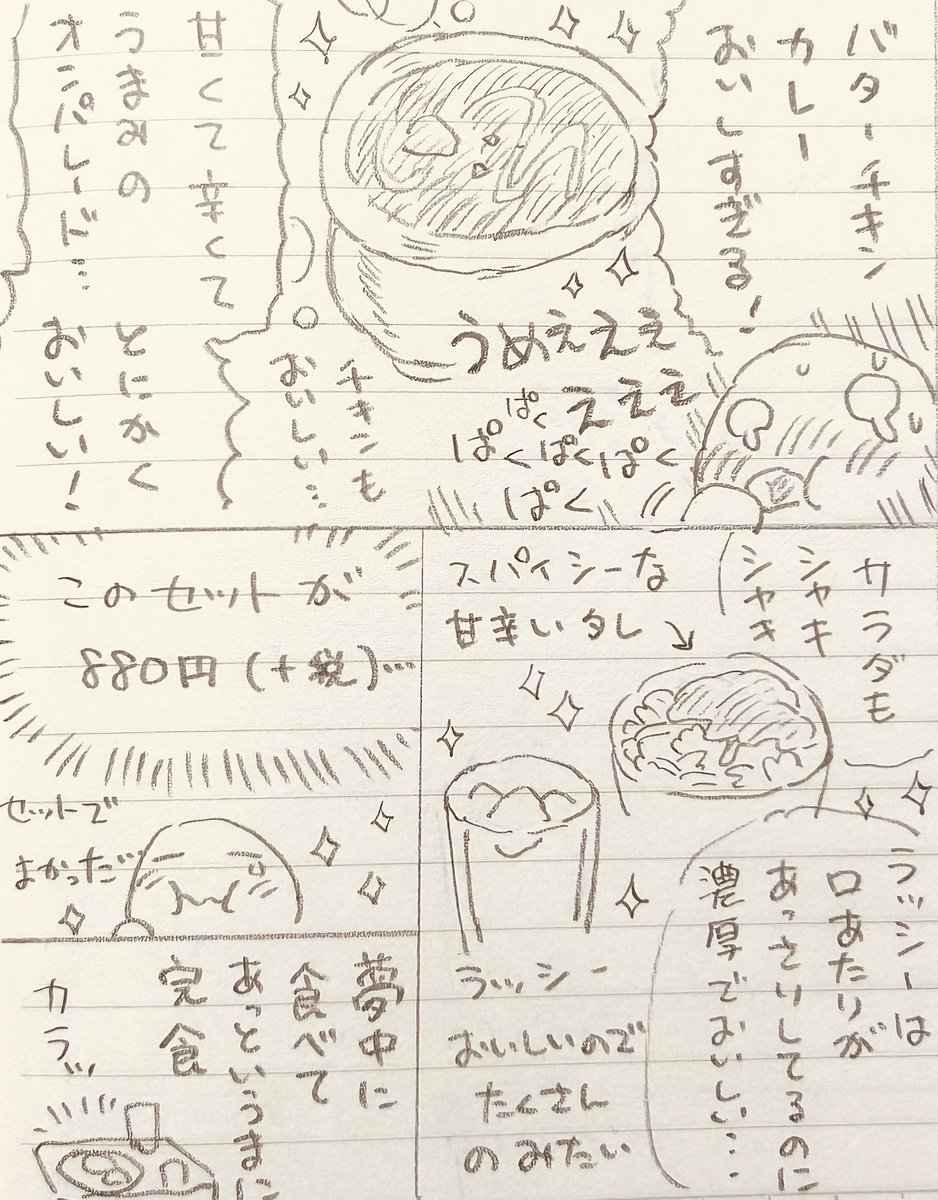 バターチキン
カレー
おいしすぎる!
うめぇぇぇ
ぇぇぇ
ぱく
ぱくぱくぱく
ぱく
チキンも
おいしい…
甘くて辛くて
うまみの
オンパレード…
とにかく
おいしい!
サラダも
シャキ
シャキ
スパイシーな
甘辛いタレ
ラッシーは
口あたりが
あっさりしてるのに
濃厚でおいしい…
ラッシー
おいしいので
たくさん
のみたい
このセットが
880円(+税)…
セットで
まかった…
夢中に
食べて
あっというまに
完食
カラッ